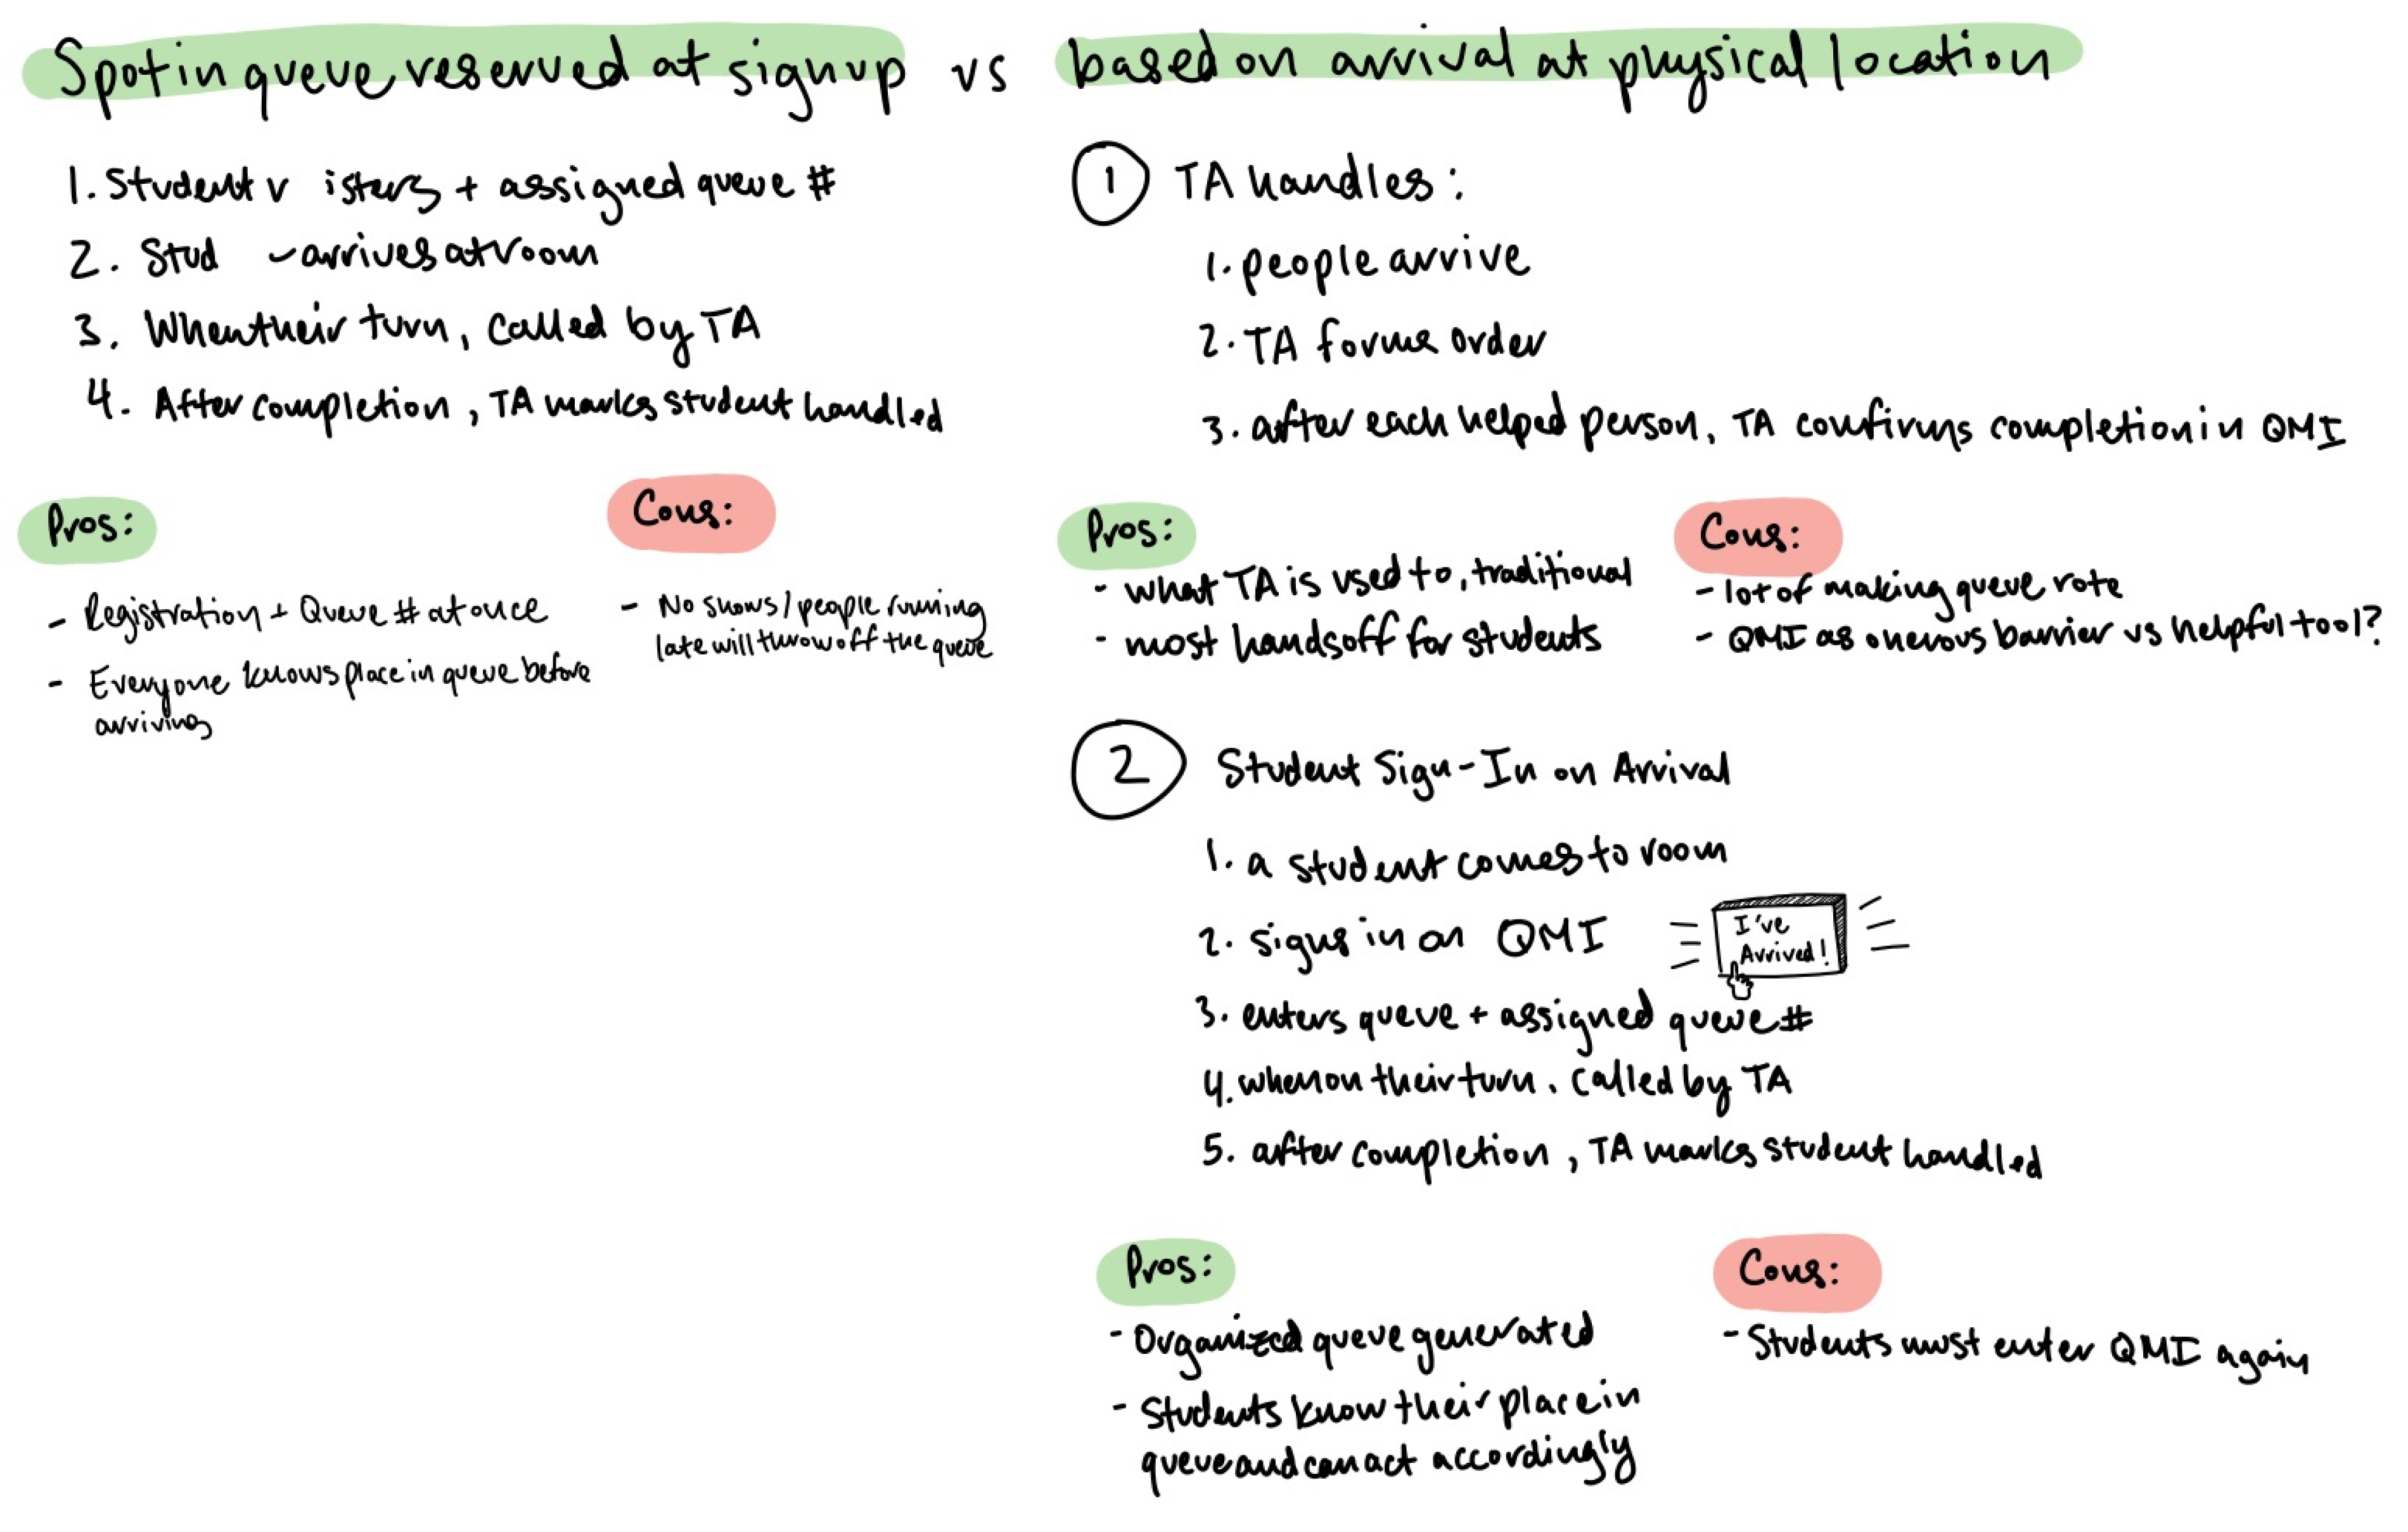 Spot in queue reserved at signup vs based on arrival at physical location
1. Student r isters + assigned queue #
2. Stud arrives at room
3. When their turn, called by TA
4. After completion, TA marks student handled
Pros:
- Registration + Queue # at once
- Everyone knows place in queue before
arriving
Cons:
- No shows / people running
late will throw off the queue
1 TA handles:
1. people arrive
2. TA forms order
3. after each helped person, TA confirms completion in QMI
Pros:
- what TA is used to, traditional
- most hands off for students
Cons:
- lot of making queue rote
- QMI as onerous barrier vs helpful tool?
2 Student Sign-In on Arrival
1. a student comes to room
2. signs in on QMI
I've
Arrived!
3. enters queue + assigned queue #
4. when on their turn, called by TA
5. after completion, TA marks student handled
Pros:
- Organized queue generated
- Students know their place in
queue and can act accordingly
Cons:
- Students must enter QMI again